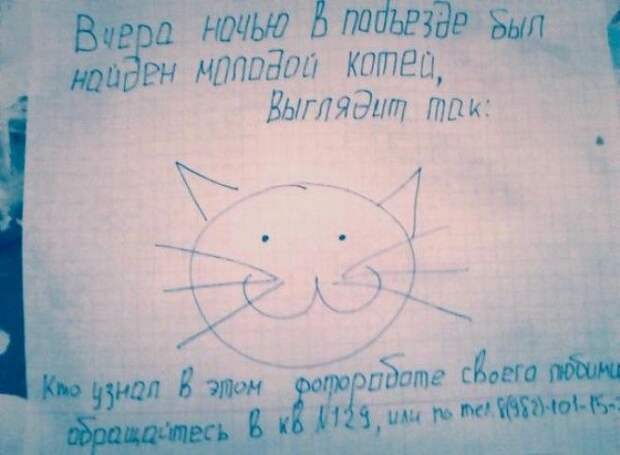 Вчера ночью в подъезде был
найден молодой котей,
Выглядит так:
Кто узнал в этом фотороботе своего любими
обращайтесь в кв №129, или по тел. 8(982)-101-15-